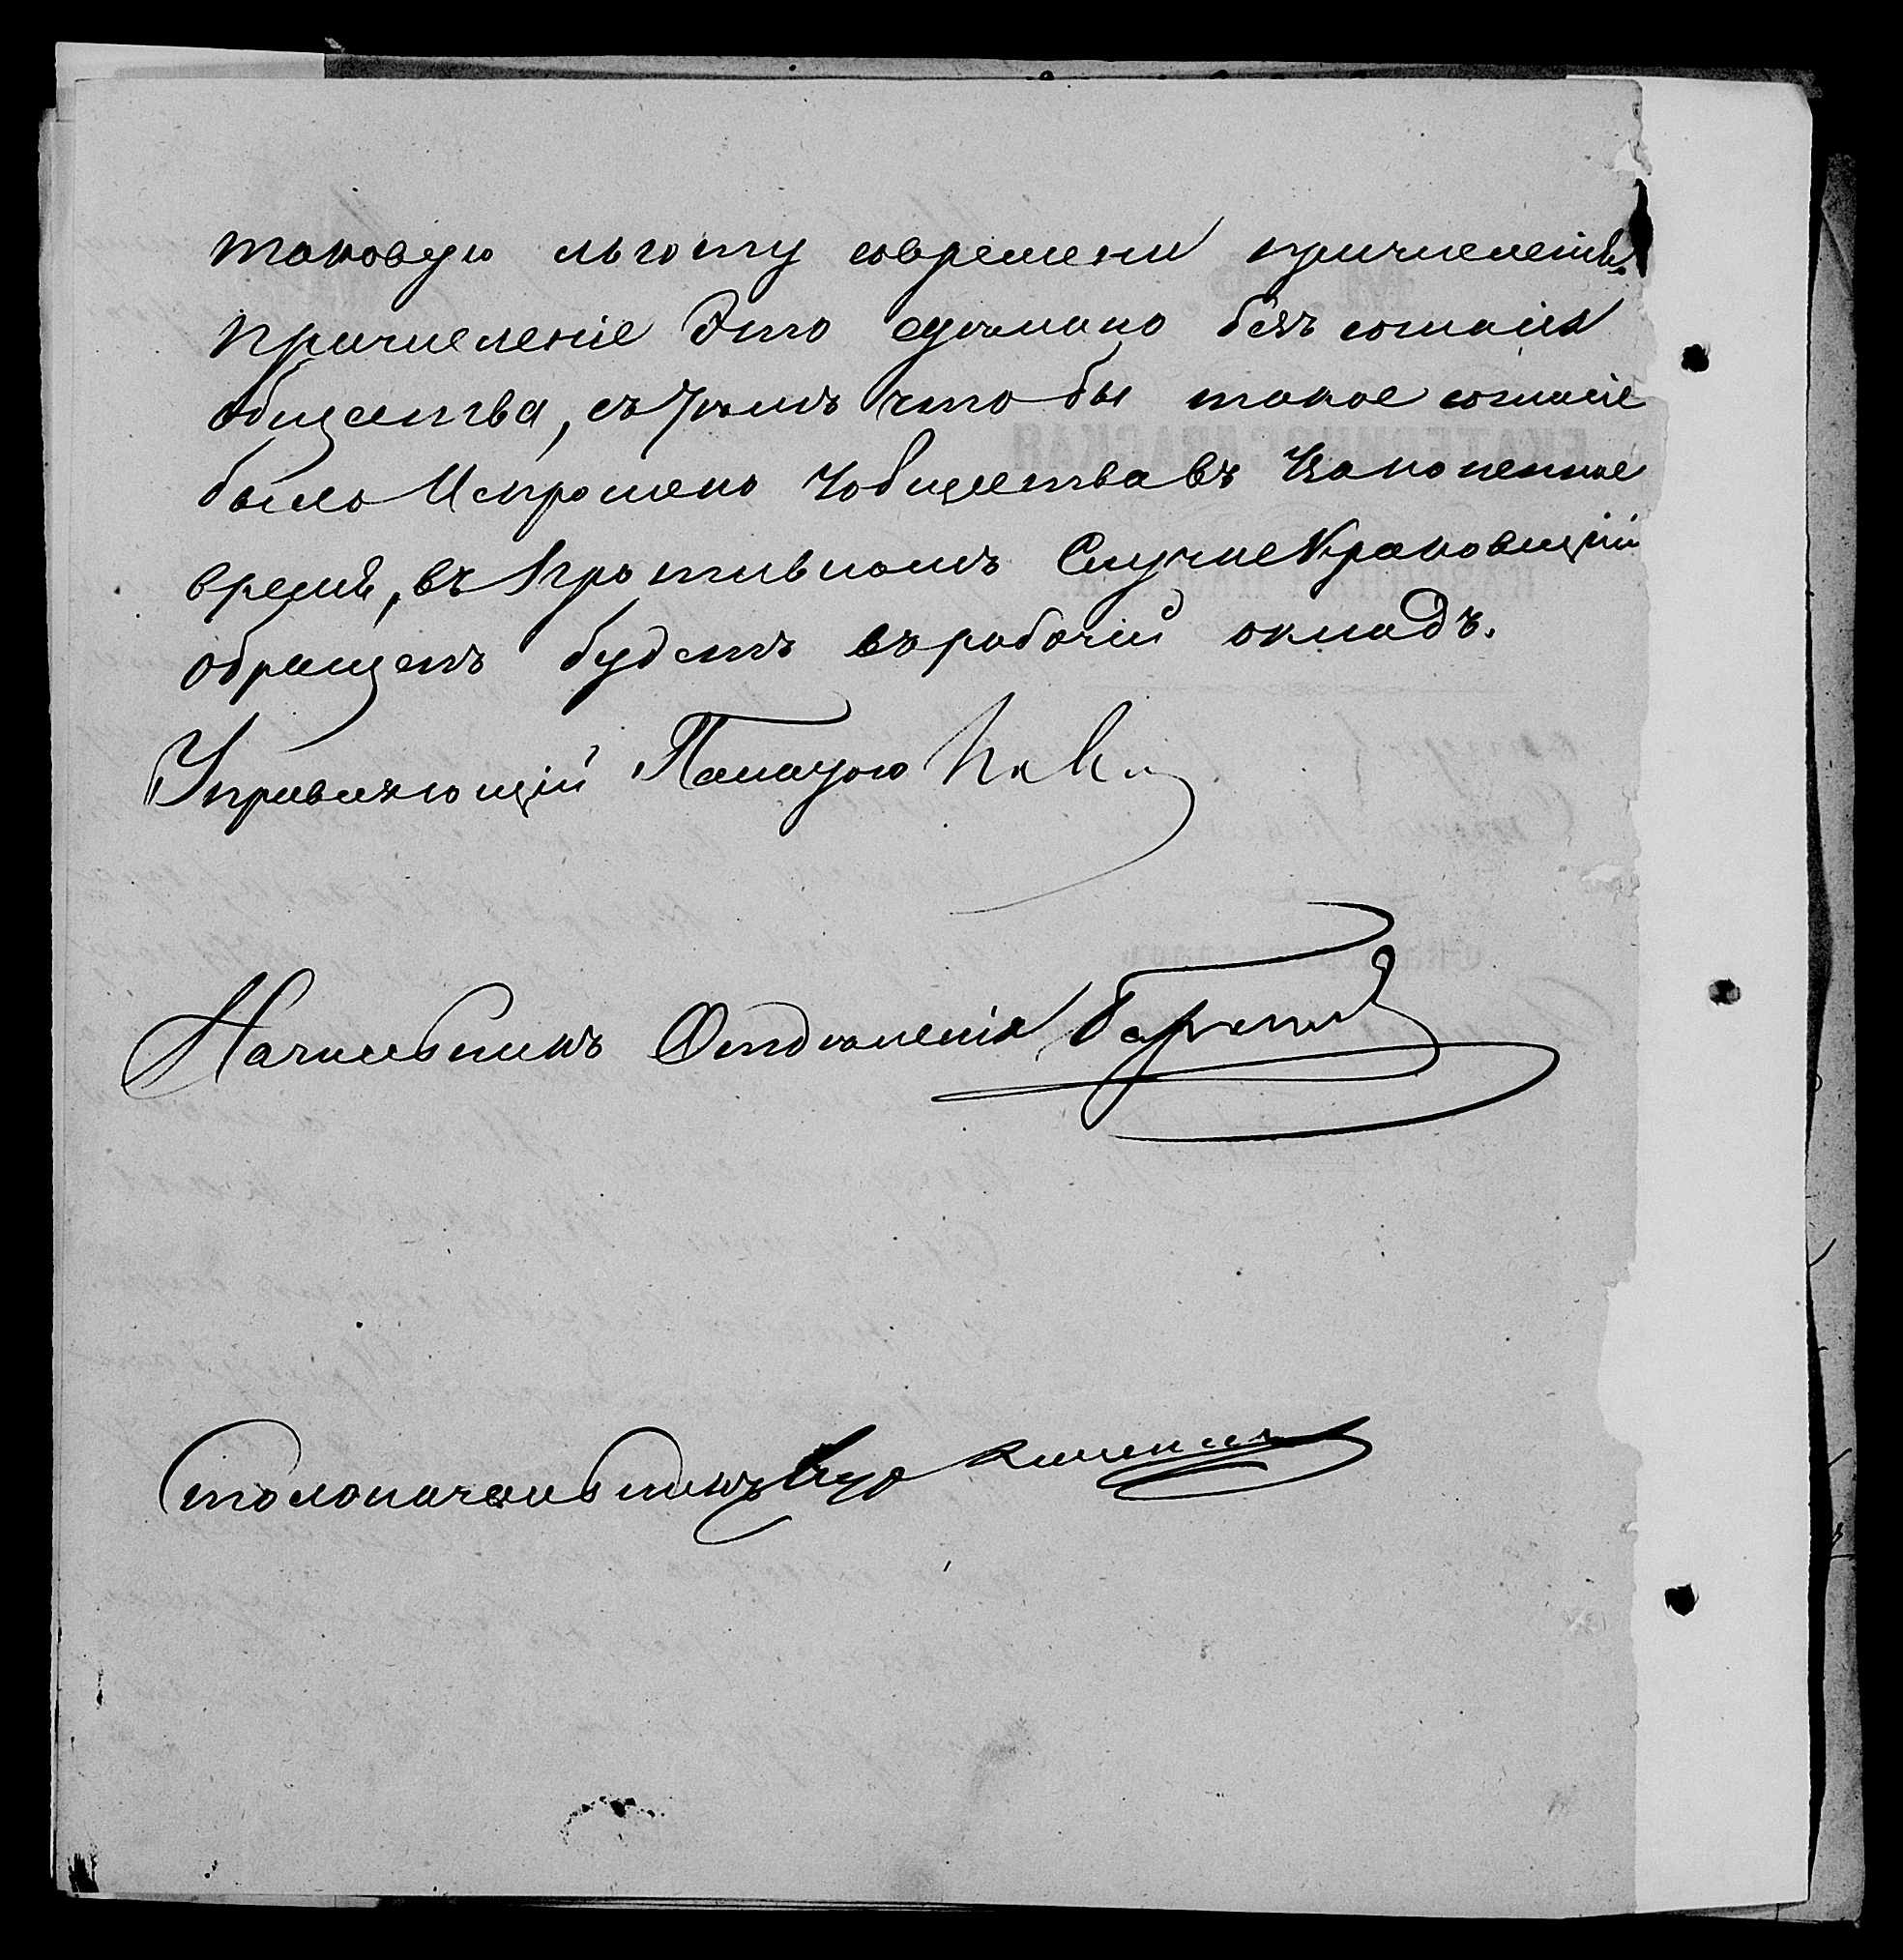 таковую льготу современи причисленія.
Причисленіе это сдѣлано безъ согласія
общества, съ тѣмъ что бы такое согласіе
было Испрошено уобщества въ Узаконенное
время, въ противномъ Случае Краковецкій
обращенъ будетъ върабочій окладъ.
Управляющій Палатою
Начальникъ Отдѣленія
Столоначальникъ